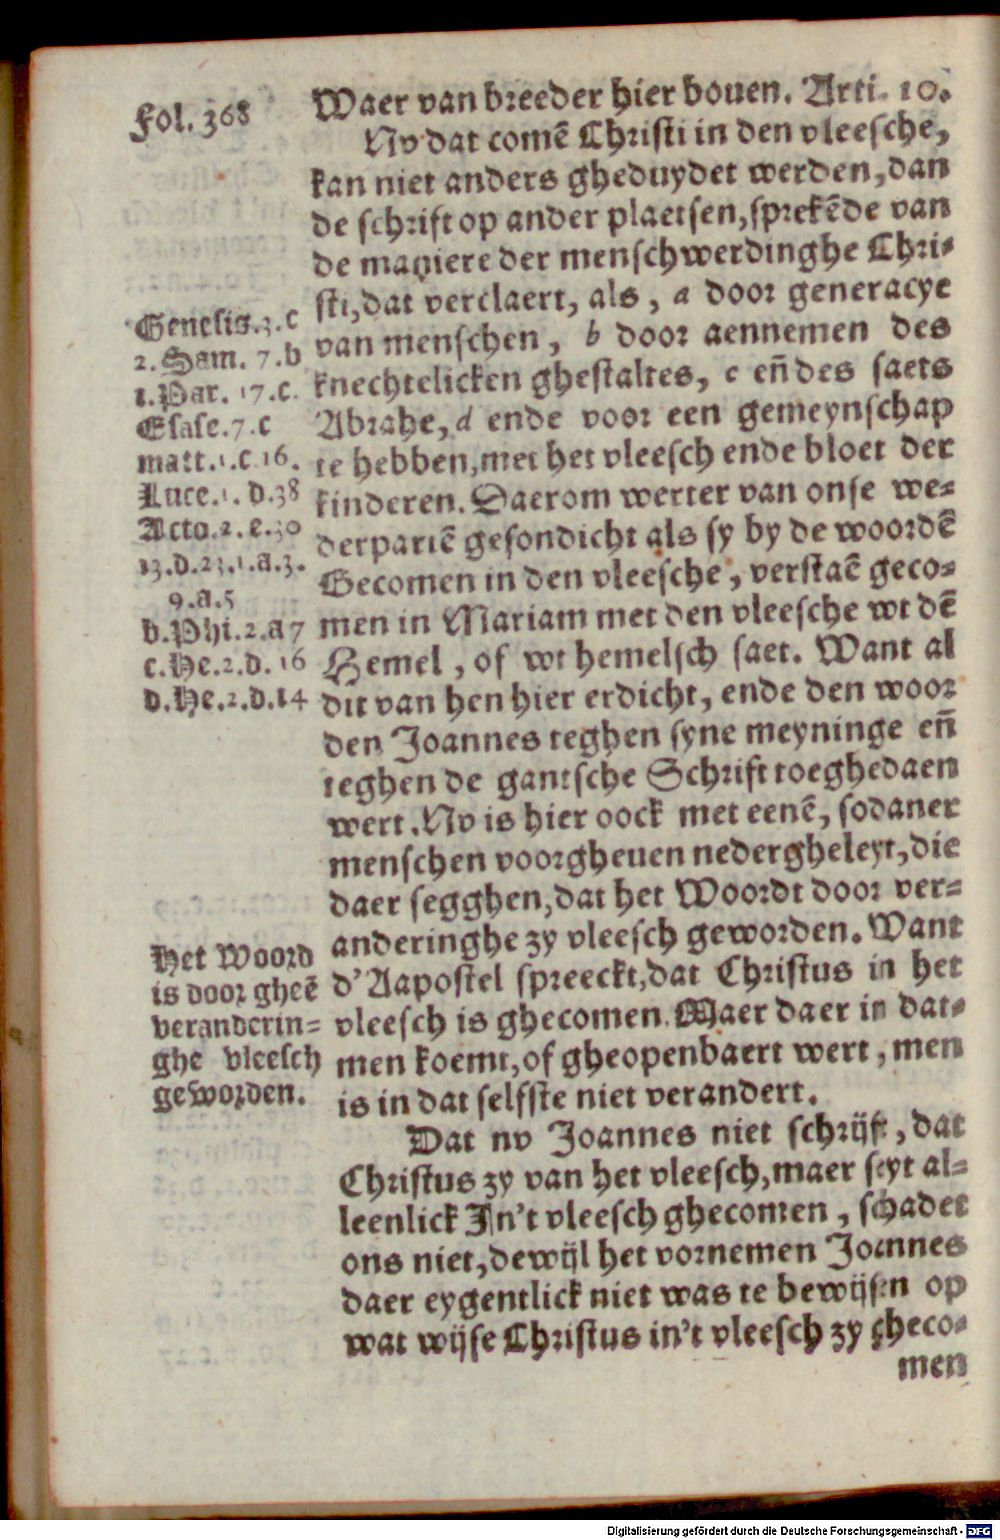 Fol. 368
Waer van breeder hier bouen. Arti. 10.
Nv dat comē Christi in den vleesche,
kan niet anders gheduydet werden, dan
de schrift op ander plaetsen, sprekēde van
de maniere der menschwerdinghe Chri-
sti, dat verclaert, als, a door generacye
van menschen, b door aennemen des
knechtelicken ghestaltes, c eñ des saets
Abrahe, d ende voor een gemeynschap
te hebben, met het vleesch ende bloet der
kinderen. Daerom werter van onse we-
derpartē gesondicht als sy by de woordē
Gecomen in den vleesche, verstaē geco-
men in Mariam met den vleesche wt dē
Hemel, of wt hemelsch saet. Want al
dit van hen hier erdicht, ende den woor
den Joannes teghen syne meyninge eñ
teghen de gantsche Schrift toeghedaen
wert. Nv is hier oock met eenē, sodaner
menschen voorgheuen nedergheleyt, die
daer segghen, dat het Woordt door ver-
anderinghe zy vleesch geworden. Want
d'Aapostel spreeckt, dat Christus in het
vleesch is ghecomen. Maer daer in dat-
men koemt, of gheopenbaert wert, men
is in dat selfste niet verandert.
Dat nv Joannes niet schrijft, dat
Christus zy van het vleesch, maer seyt al-
leenlick In't vleesch ghecomen, schadet
ons niet, dewijl het vornemen Joannes
daer eygentlick niet was te bewijsen op
wat wijse Christus in't vleesch zy gheco-
men
Genesis.3.c
2.Sam. 7.b
1.Par. 17.c.
Esaie.7.c
matt.1.c 16.
Luce.1. d.38
Acto.2.e.30
13.d.23.1.a.3.
9.a.5
b.Phi.2.a 7
c.He.2.d.16
d.He.2.d.14
Het Woord
is door gheē
veranderin-
ghe vleesch
geworden.
Digitalisierung gefördert durch die Deutsche Forschungsgemeinschaft - DFG